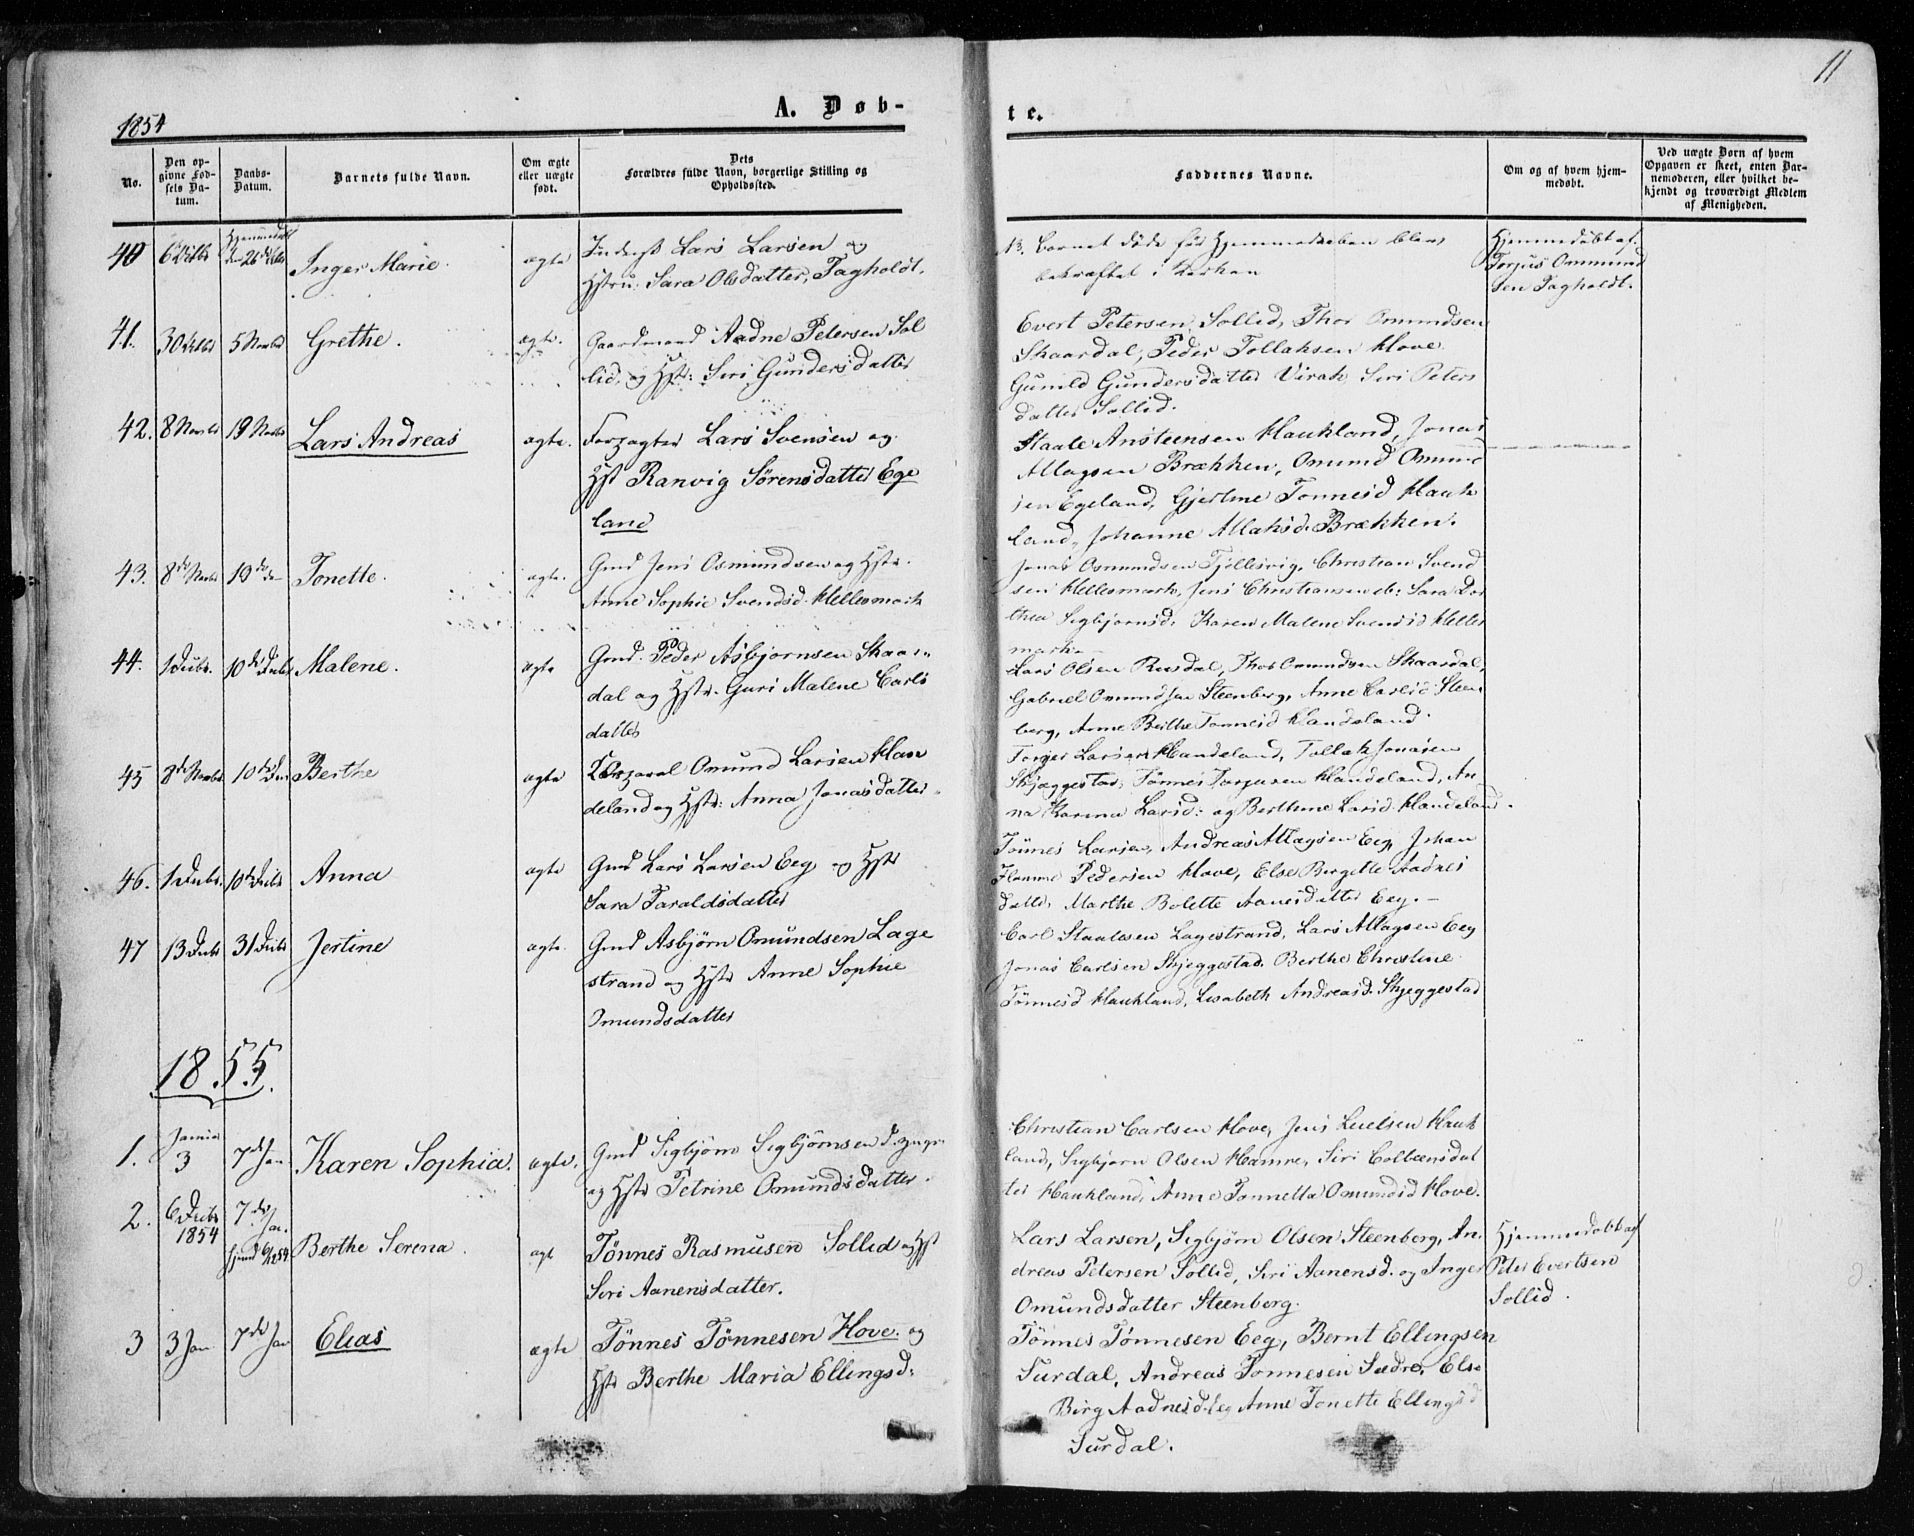 11
1854
A. Døb-
te.
No.
Den op-
givne Fød-
sels Da-
tum.
Daabs-
Datum.
Barnets fulde Navn.
Om ægte
eller uægte
født.
Dets
Forældres fulde Navn, borgerlige Stilling og
Opholdssted.
Faddernes Navne.
Om og af hvem hjem-
medøbt.
Ved uægte Børn af hvem
Opgaven er skeet, enten Bar-
nemoderen, eller hvilket be-
kjendt og troværdigt Medlem
af Menigheden.
40 Inger Marie. ægte Lars Larsen og
Hstru. Sara Olsdatter, Tagholdt.
Barnet døde før Hjemmedaaben blev
bekræftet i Kirken
Hjemmedøbt af
Torjus Ommund
sen Tagholdt.
41. 30 Octbr 5 Novbr Grethe. ægte. Gaardmand Aadne Petersen Sol
lid, og Hstr: Siri Gundersdatter
Evert Petersen Sollid, Thor Omundsen
Skaardal, Peder Tollaksen Hove
Gunild Gundersdatter Virak, Siri Peters
datter Sollid.
42. 8 Novbr 19 Novbr Lars Andreas ægte. Forpagter Lars Svensen og
Hst Ranvig Sørensdatter Ege
land
Staale Ansteensen Haukland, Jonas
Atlagsen Brækken, Omund Omund
sen Egeland, Gjertine Tonnesd Hauk
land, Johanne Atlaksd. Brækken.
43. 8de Novbr 19de Tonette. ægte. Gmd Jens Osmundsen og Hstr.
Anne Sophie Svendsd. Hellesmark
Jonas Osmundsen Fjellesvig, Christian Svend
sen Hellesmark, Jens Christiansen ib: Sara Dor
thea Sigbjørnsd. Karen Malene Svendsd Helles
mark
44. 1 Decbr. 10de Decbr Malene. ægte Gmd. Peder Asbjørnsen Skaar
dal og Hstr. Guri Malene Carls
datter
Lars Olsen Rusdal, Thor Omundsen Skaardal,
Gabriel Omundsen Steenberg, Anne Carlsd. Steen
berg, Anne Berthe Tonnesd Handeland.
45 8de Novbr 10de Berthe ægte Omund Larsen Han
deland og Hstr: Anna Jonasdatter
Torger Larsen Handeland, Tollak Jonasen
Skjeggestad, Tønnes Torgersen Handeland, An
na Karina Larsd: og Berthine Larsd. Handeland.
46. 1 Decbr. 10de Decbr Anna ægte Gmd Lars Larsen Eeg og Hstr
Sara Taraldsdatter
Tønnes Larsen, Andreas Atlagsen Eeg, Johan
Pedersen Hove, Else Birgitte Aadnes
datter, Marthe Bolette Aanesdatter Eeg.
47 13 Decbr 31 Decbr Jertine ægte. Gmd Asbjørn Omundsen Lage
strand og Hstr Anne Sophie
Omundsdatter
Carl Staalesen Lagestrand, Lars Atlagsen Eeg
Jonas Carlsen Skjeggestad. Berthe Christine
Tønnesd Haukland, Lisabeth Andreasd. Skjeggestad
1855.
1. Januar
3 7de Jan Karen Sophia. ægte. Gmd Sigbjørn Sigbjørnsen
og Hstr Petrine Omundsdatter.
Christian Carlsen Hove, Jens Hauk
land, Sigbjørn Olsen Hamre, Siri Colbensdat
ter Haukland, Anne Tonnetta Omundsd Hove.
2. 6 Decbr
1854 7de
Jan. Berthe Serena. ægt Tønnes Rasmusen Sollid og Hst
Siri Aanensdatter.
Lars Larsen, Sigbjørn Olsen Steenberg, An-
dreas Petersen Sollid, Siri Aanensd. og Inger
Omundsdatter Steenberg.
Hjemmedøbt af
Peter Evertsen
Sollid.
3 3 Jan 7de Jan Elias ægte Tønnes Tønnesen Hove. og
Hstr Berthe Maria Ellingsd:
Tønnes Tønnesen Eeg, Bernt Ellingsen
Surdal, Andreas Tonnesen Sædre, Else
Birg Aadnesd. Eeg Anne Tonette Ellingsd
Surdal.